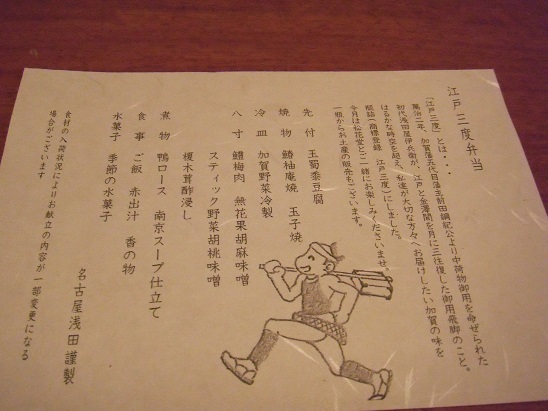 江戸三度弁当
「江戸三度」とは・・・
萬治二年、加賀藩五代目藩主前田綱紀公より中荷物御用を命ぜられた
初代浅田屋伊兵衛が、江戸と金澤間を月に三往復した御用飛脚のこと。
はるかな時空を超え、私達が大切な方々へお届けしたい加賀の味を
瓶詰(商標登録 江戸三度)にしました。
今月は松花堂とご一緒にお楽しみくださいませ。
一瓶からお土産の販売もございます。
先付 玉蜀黍豆腐
焼物 鰆柚庵焼 玉子焼
冷皿 加賀野菜冷製
八寸 鱧梅肉 無花果胡麻味噌
スティック野菜胡桃味噌
榎木茸酢浸し
煮物 鴨ロース 南京スープ仕立て
食事 ご飯 赤出汁 香の物
水菓子 季節の水菓子
名古屋浅田謹製
食材の入荷状況によりお献立の内容が一部変更になる
場合がございます